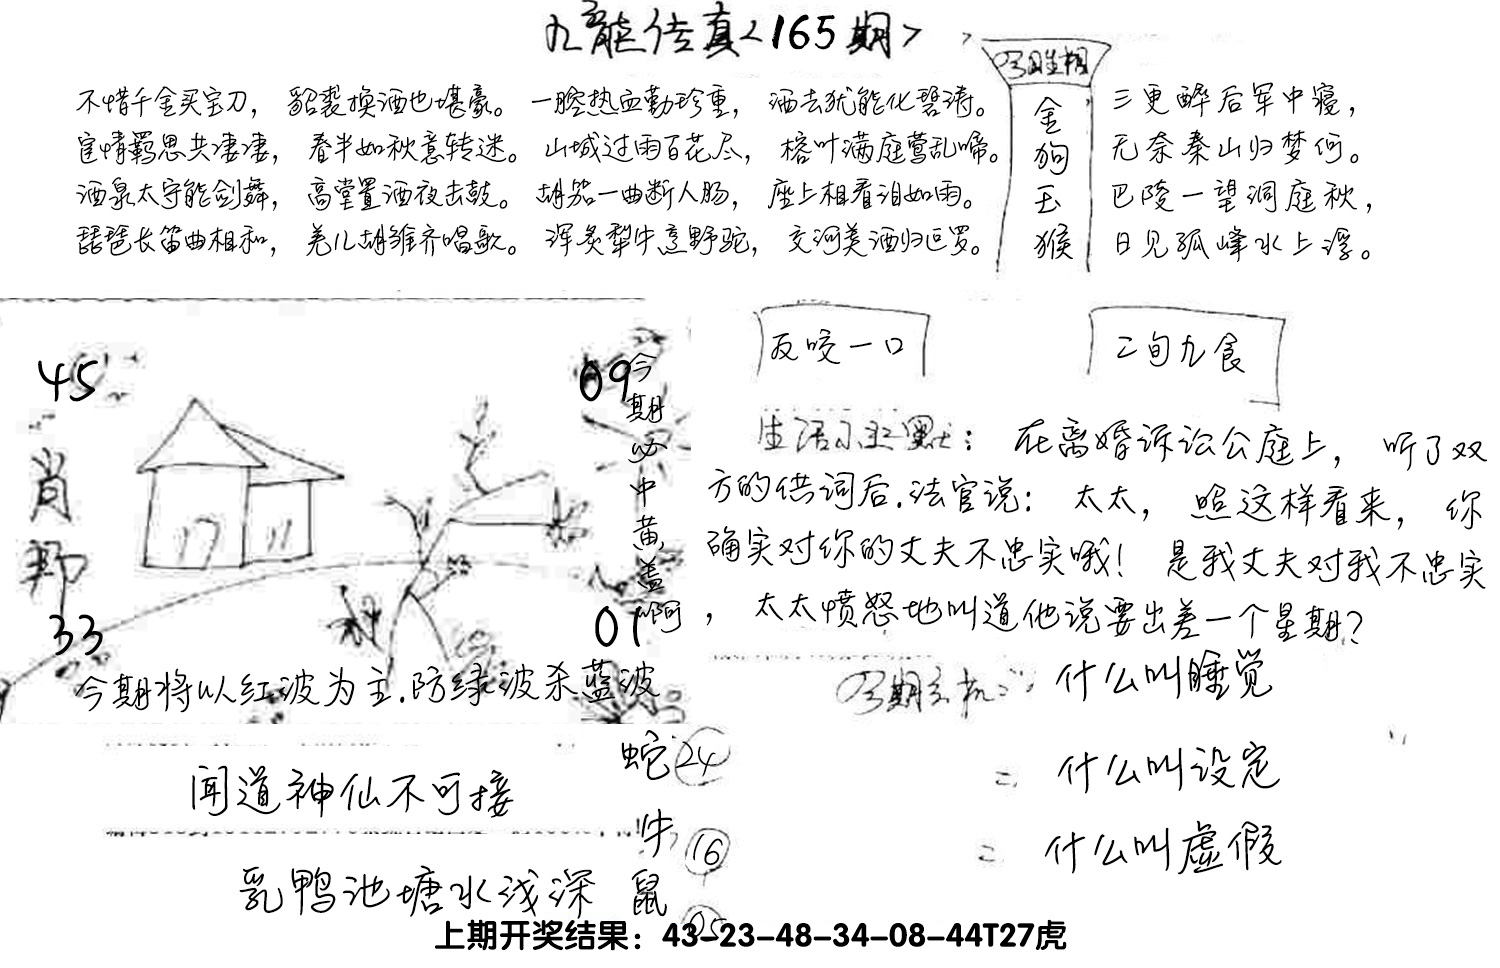 九龙传真<165期>
不惜千金买宝刀，貂裘换酒也堪豪。一腔热血勤珍重，洒去犹能化碧涛。
宦情羁思共凄凄，春半如秋意转迷。山城过雨百花尽，榕叶满庭莺乱啼。
酒泉太守能剑舞，高堂置酒夜击鼓。胡笳一曲断人肠，座上相看泪如雨。
琵琶长笛曲相和，羌儿胡雏齐唱歌。浑炙犁牛烹野驼，交河美酒归叵罗。
今期生相
金
狗
玉
猴
三更醉后军中寝，
无奈秦山归梦何。
巴陵一望洞庭秋，
日见孤峰水上浮。
45
09
肖
33
01
今期必中黄盖啊
今期将以红波为主.防绿波杀蓝波
反咬一口
二旬九食
生活小幽默：在离婚诉讼公庭上，听了双
方的供词后.法官说：太太，照这样看来，你
确实对你的丈夫不忠实哦！是我丈夫对我不忠实
，太太愤怒地叫道他说要出差一个星期？
今期玄机：什么叫睡觉
二 什么叫设定
二 什么叫虚假
闻道神仙不可接
乳鸭池塘水浅深
蛇 24
牛 16
鼠 05
上期开奖结果：43-23-48-34-08-44T27虎